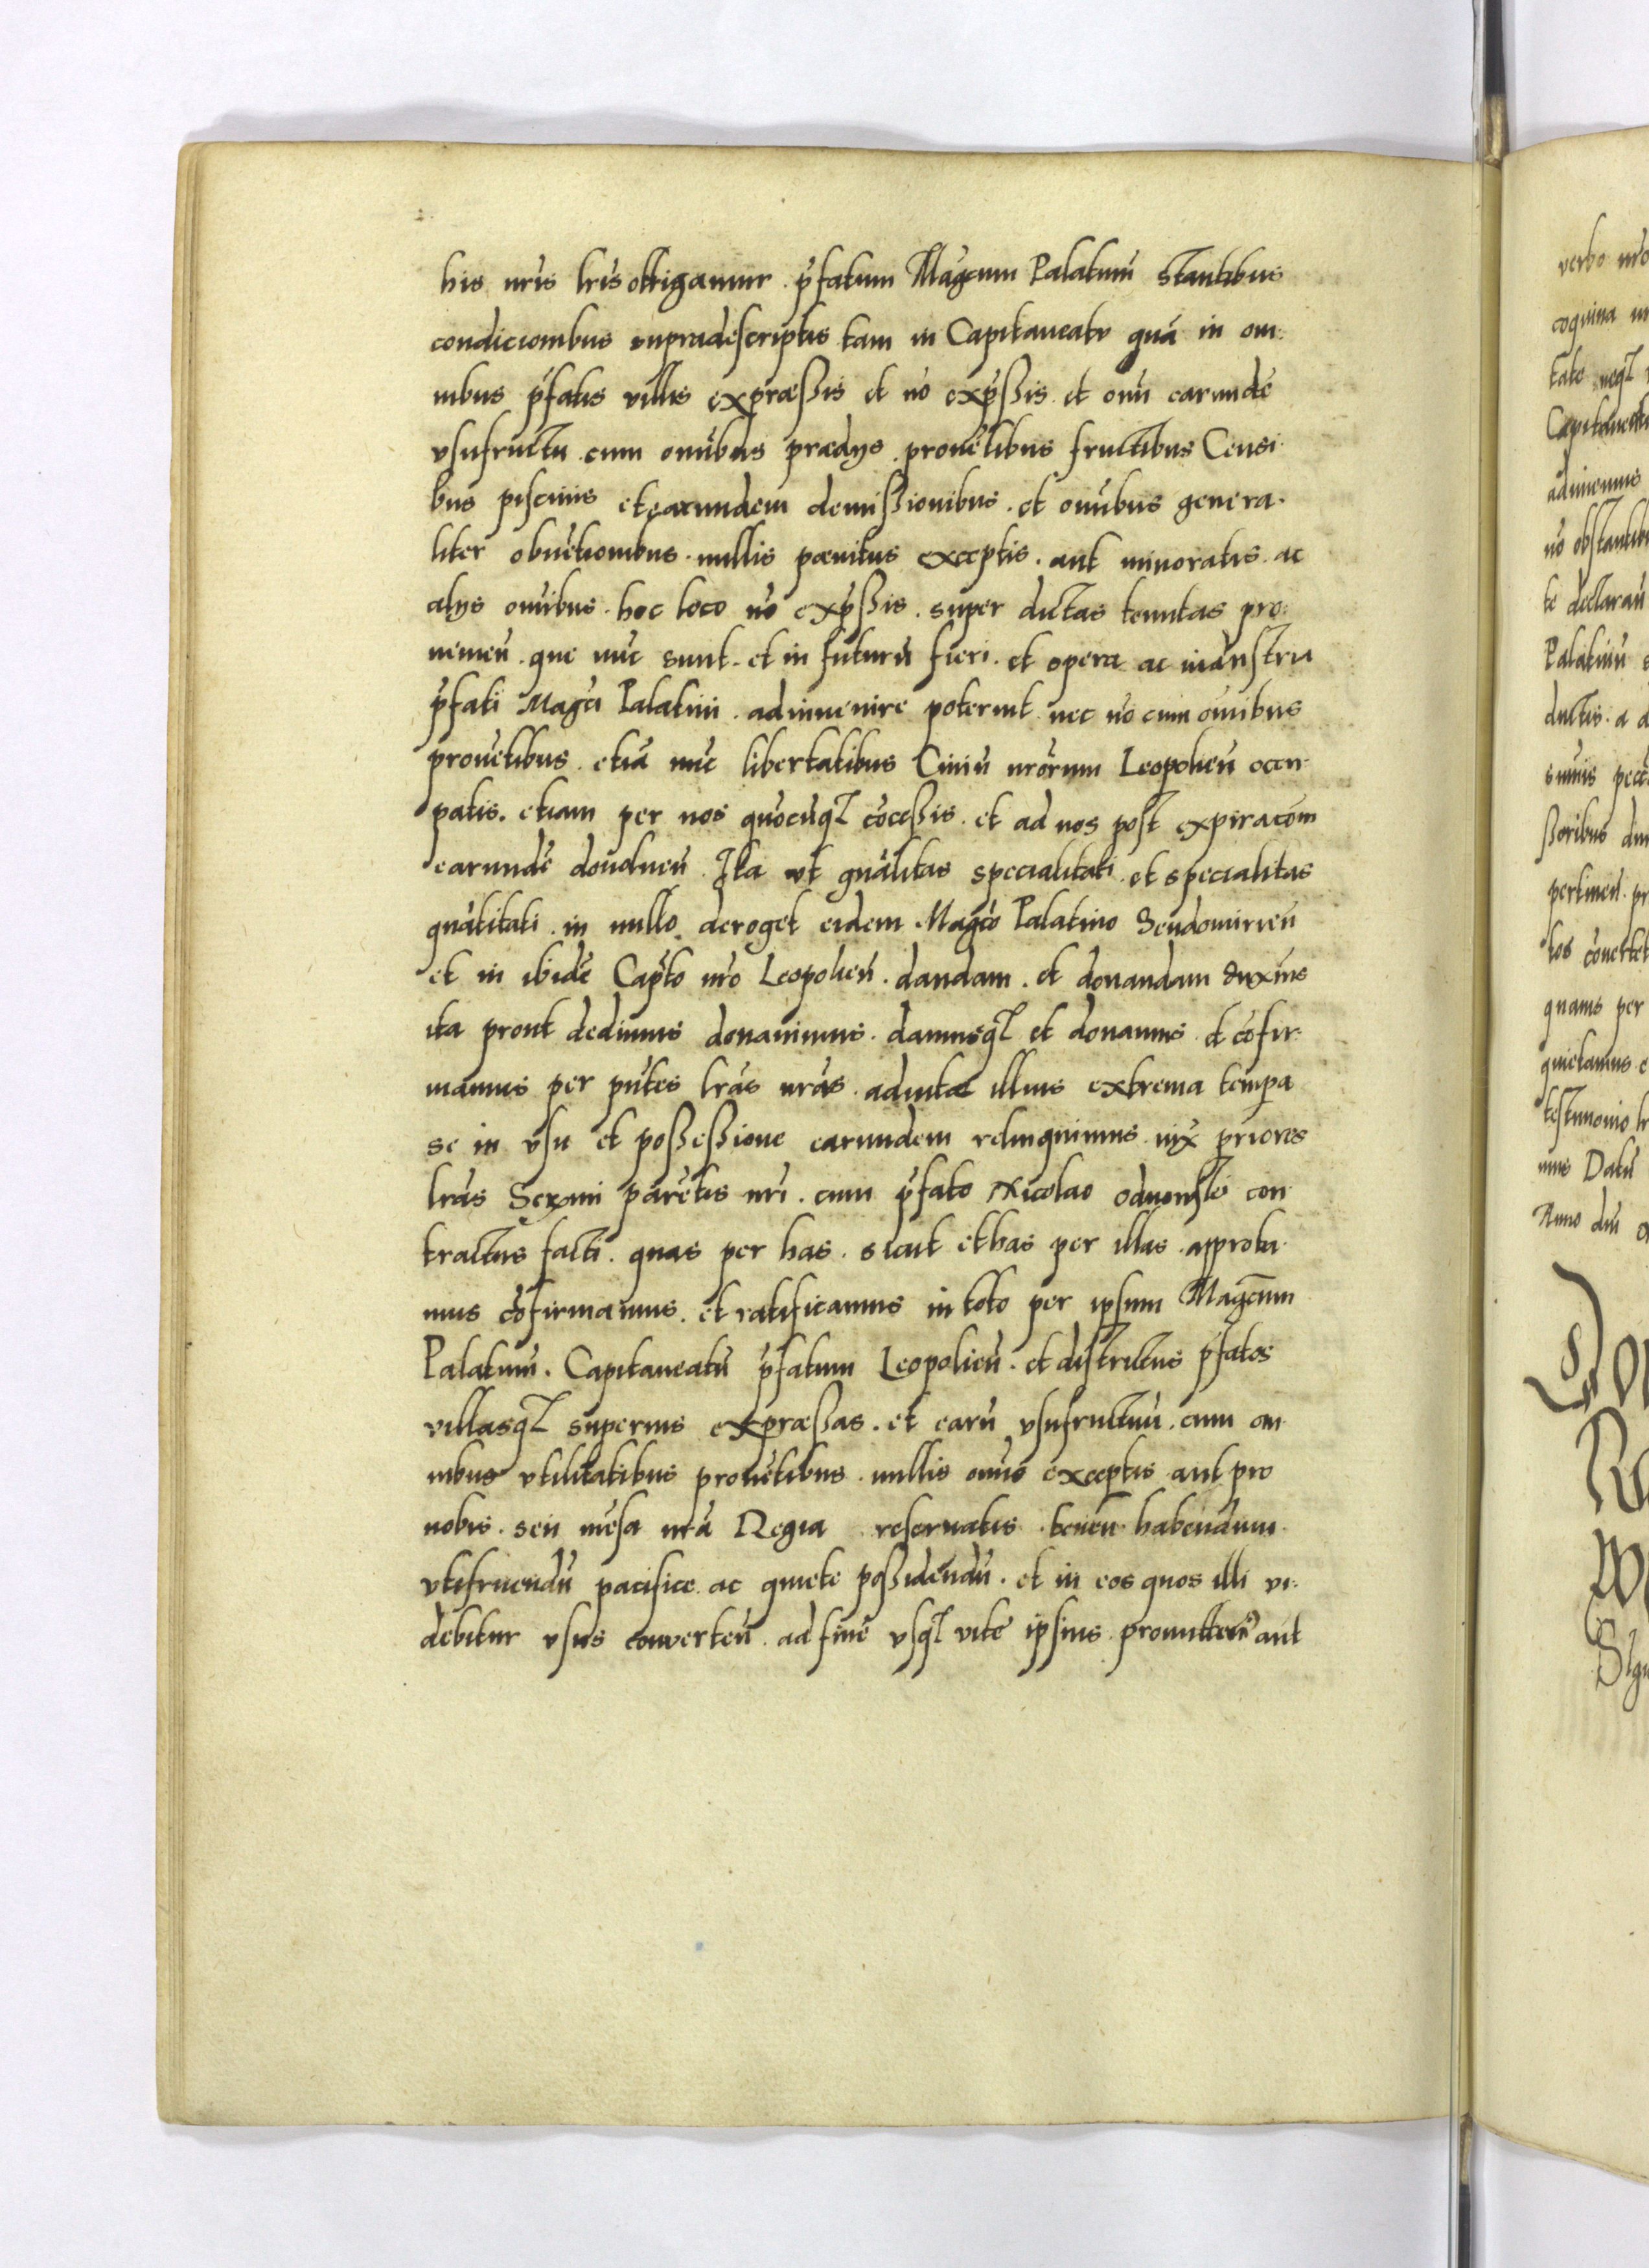 his nr̃is lr̃is obligamur . p̃fatum Magcum Palatinũ stantibus
condicionibus supradescriptis tam in Capitaneatu quã in om¬
nibus p̃fatis villis expræssis et nõ exp̃ssis et oniũ earundẽ
vsufructu cum omĩbus prædijs prouẽtibus fructibus Censi¬
bus piscinis et earundem demissionibus . et omĩbus genera¬
liter obuẽtionibus . nullis pœnitus exceptis . aut minoratis . ac
alijs omĩbus . hoc loco nõ exp̃ssis . super dictas tenutas pro¬
uenieñ . que nũc sunt . et in futurũ fieri . et opera ac indũstria
p̃fati Magci Palatini . adinuenire poterint nec nõ cum omĩbus
prouẽtibus . etiã nũc libertatibus Ciuiũ nrõrum Leopolieñ occu¬
patis . etiam per nos quocũq₃ cõcessis . et ad nos post expiracõm
earundẽ deuolueñ . Ita ut gñalitas specialitati . et specialitas
gñalitati . in nullo . deroget eidem . Magco Palatino Sendomirieñ
et in ibidẽ Capto nr̃o Leopolieñ . dandam . et donandam duximus
ita prout dedimus donauimus . damusq₃ et donamus et cõfir¬
mamus per pñtes lr̃as nr̃as . ad vitæ illius extrema tempa
se in vsu et possessione earundem relinquimus iux priores
lr̃as Serxmi parẽtis nr̃i . cum p̃fato Nicolao odnowsky con
tractus facti . quas per has . sicut et has per illas . approba¬
mus cõfirmamus . et ratificamus in toto per ipsum Magcum
Palatinũ . Capitaneatũ p̃fatum Leopolieñ . et districtus p̃fatos
villasq₃ superius expræssas . et earũ vsufructuũ . cum om
nibus vtilitatibus prouẽtibus . nullis omĩo exceptis aut pro
nobis . seu mẽsa nr̃a Regia reseruatis . teneñ habendum .
vtifruendũ pacifice ac quiete possidendũ . et in eos quos illi vi¬
debitur vsus conuerteñ . ad finẽ vsq₃ vite ipsius promitteñ aut
verbo nr̃o
Capitaneatu
adimemus
te declarau
Palatinũ
ductis . a
pertineñ . pr
quietamus
testimonio
mus Datũ
Anno dñi